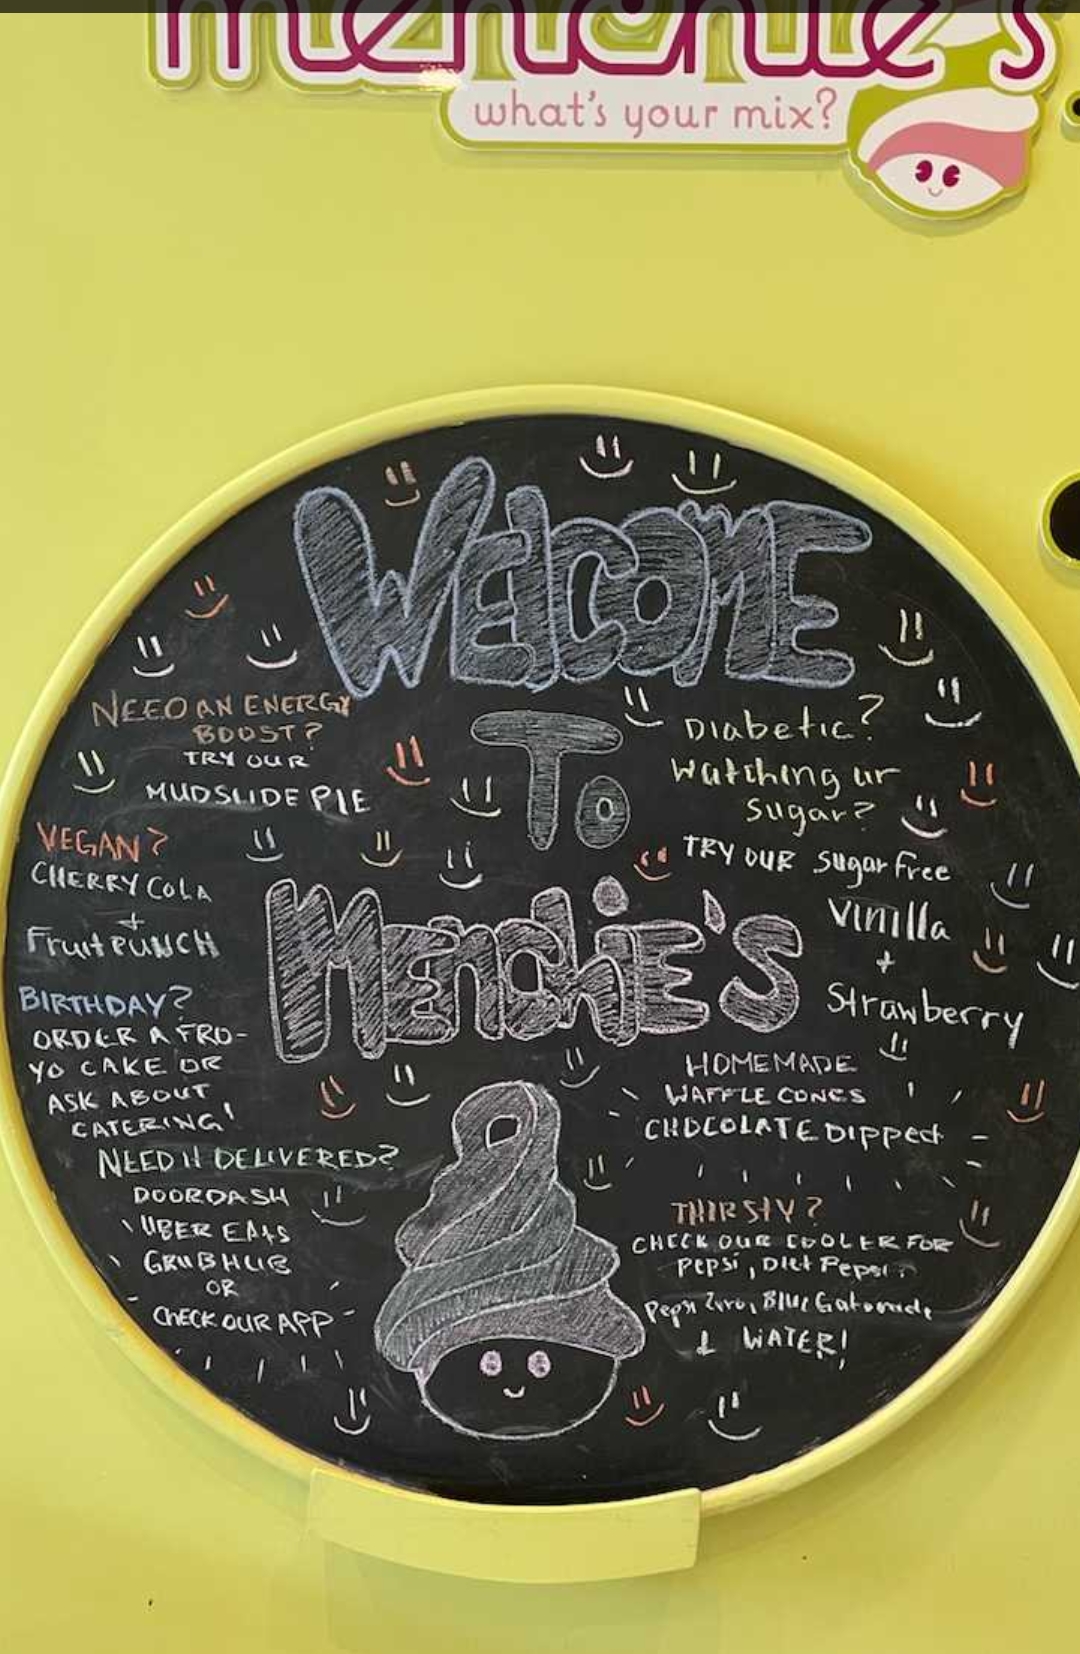 menchie's
what's your mix?
WElcOME
To
MEnchiE's
NEED AN ENERGY
BOOST?
TRY OUR
MUDSLIDE PIE
VEGAN?
CHERRY COLA
+
Fruit PUNCH
BIRTHDAY?
ORDER A FRO-
YO CAKE OR
ASK ABOUT
CATERING!
NEED It DELIVERED?
DOORDASH
UBER EAts
GRUBHUB
OR
ChECK OUR APP
Diabetic?
Watching ur
Sugar?
TRY OUR Sugar Free
Vinilla
+
Strawberry
HOMEMADE
WAFFLE CONES
CHOCOLATE Dipped
THIRSTY?
CHECK OUR COOLER FOR
Pepsi, Diet Pepsi,
Pepsi Zero, BlUE Gatorade,
& WATER!